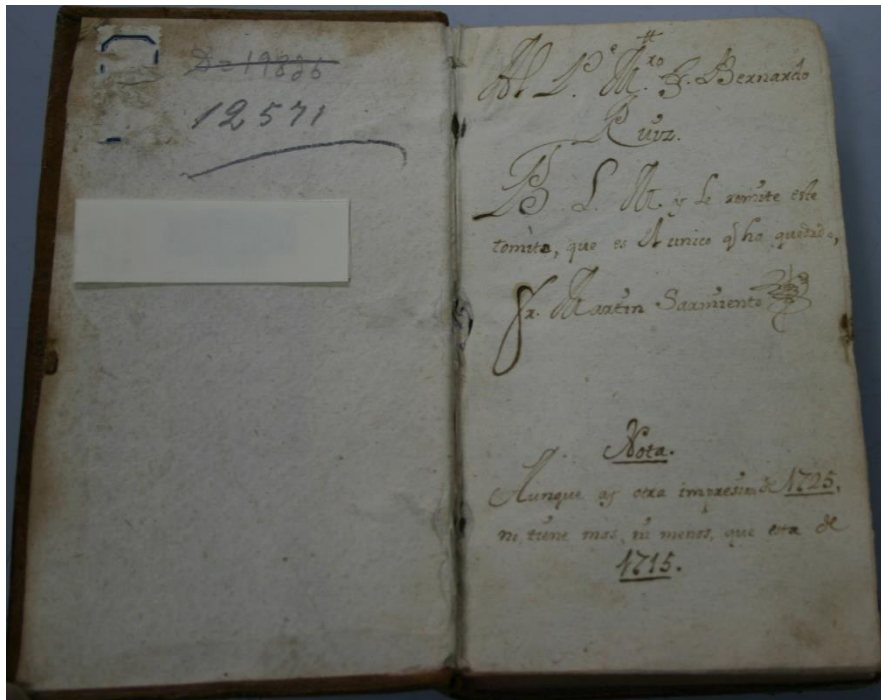 D=19886
12571
Al P.e M.ro F. Bernardo
Ruiz.
B L. M. y le remite este
tomito, que es el unico q ha quedado,
Fr. Martin Sarmiento
Nota.
Aunque ay otra impresion de 1725,
no tiene mas, ni menos, que esta de
1715.